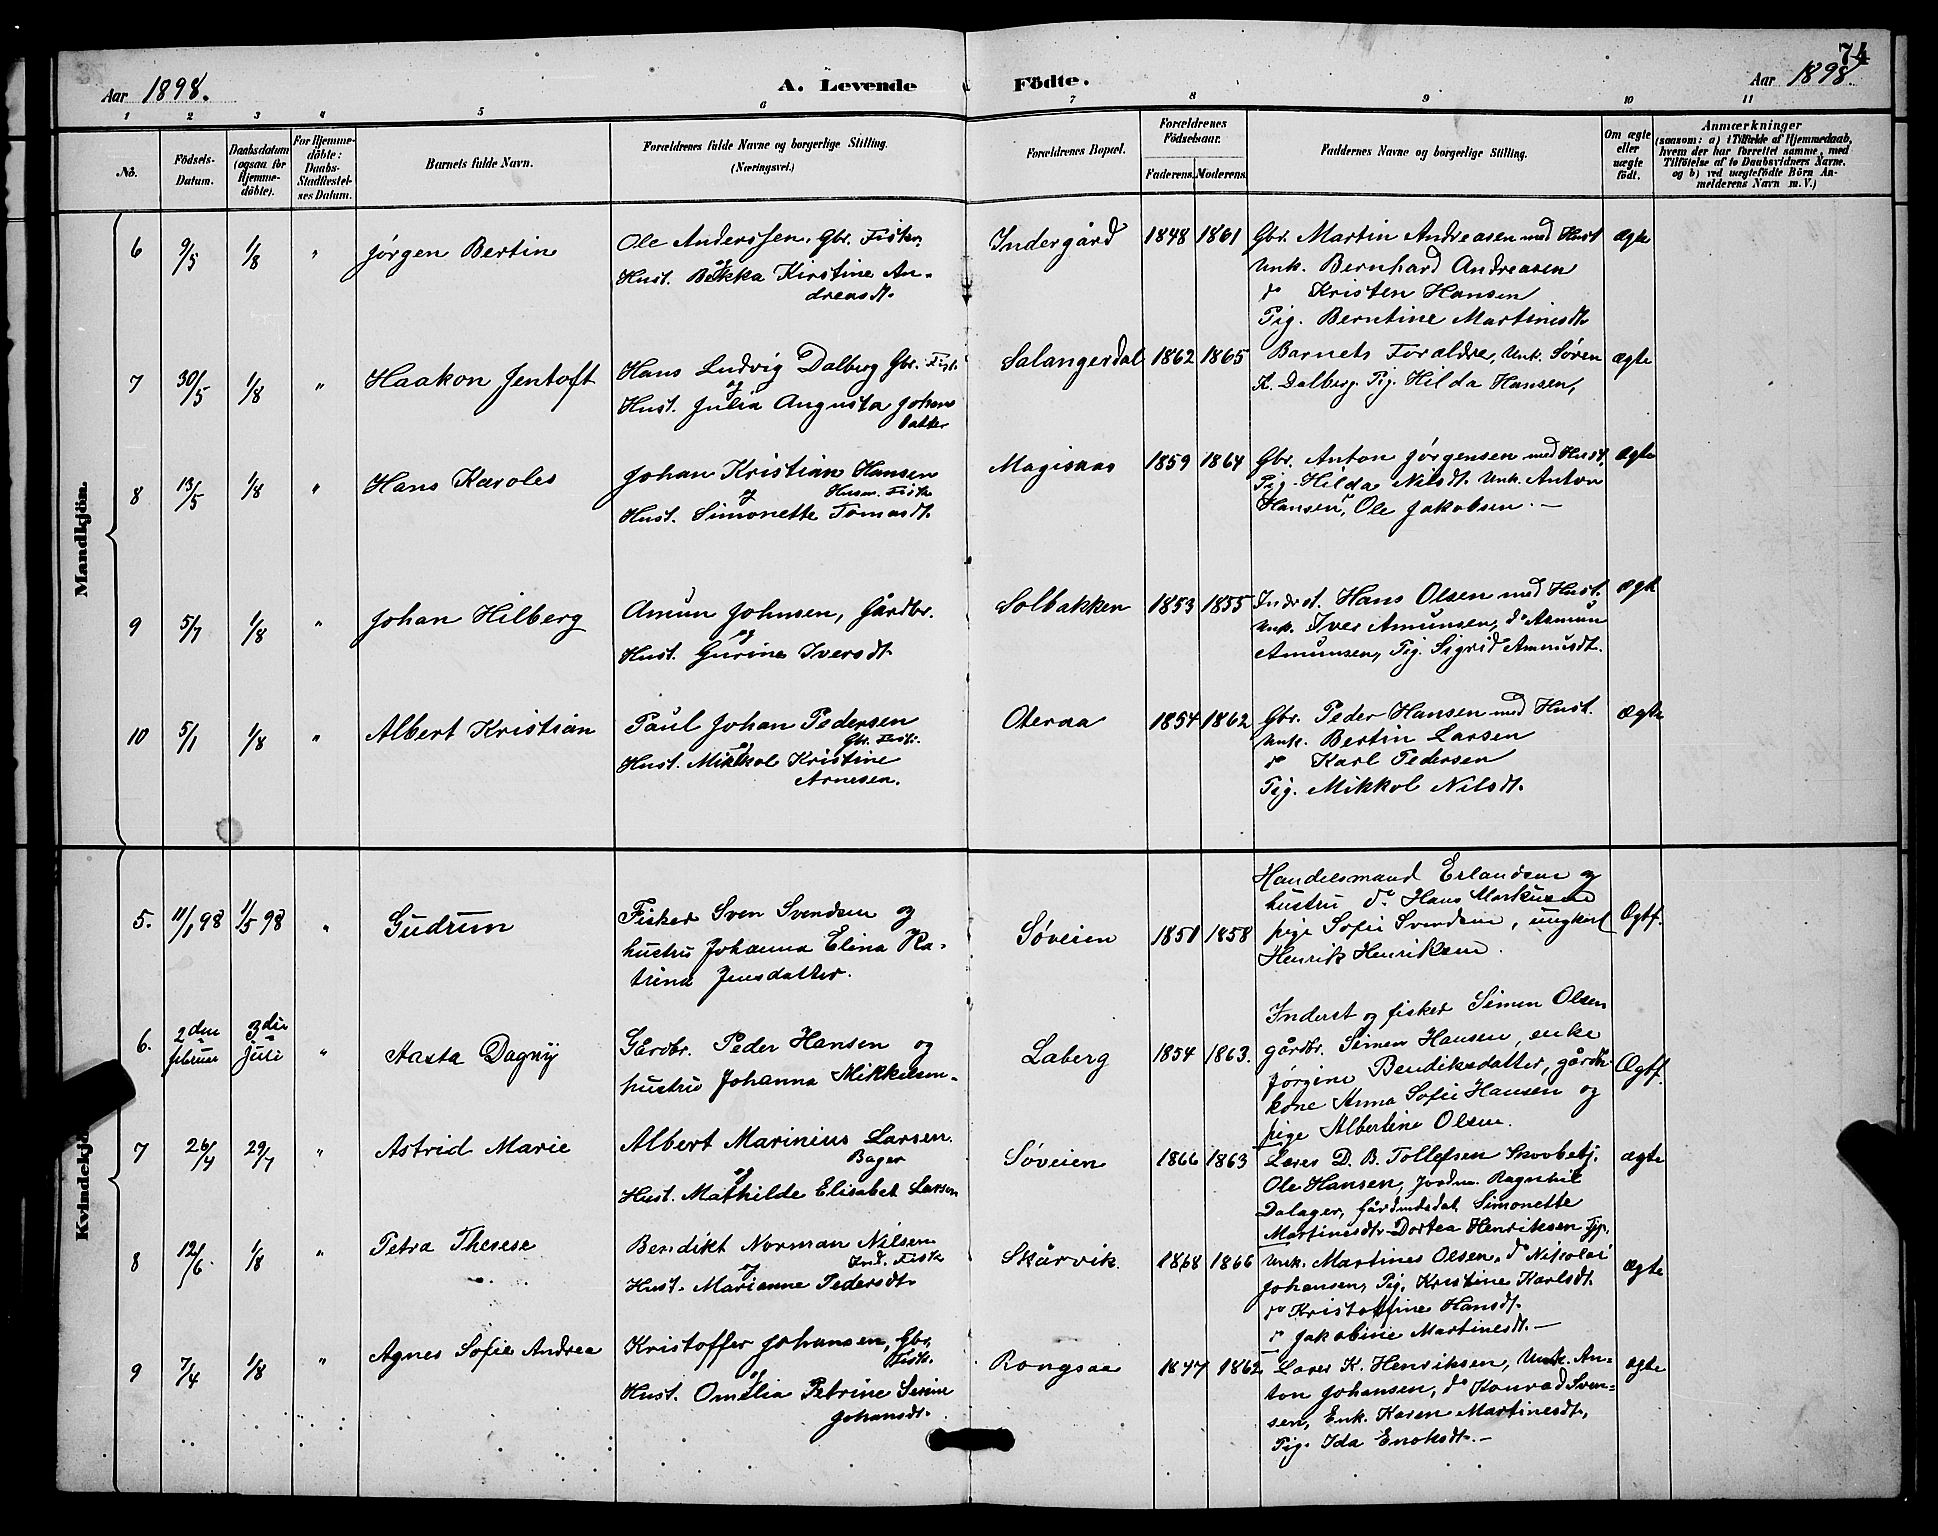 74
Aar 1898.
A. Levende Födte.
Aar 1898.
1 2 3 4 5 6 7 8 9 10 11
No.
Födsels-
Datum.
Daabsdatum
(ogsaa for
Hjemme-
döbte).
For Hjemme-
döbte:
Daabs-
Stadfæstel-
ses Datum.
Barnets fulde Navn.
Forældrenes fulde Navne og borgerlige Stilling.
(Næringsvei.)
Forældrenes Bopæl.
Forældrenes
Födselsaar.
Faderens. Moderens.
Faddernes Navne og borgerlige Stilling.
Om ægte
eller
uægte
födt.
Anmærkninger
(saasom: a) i Tilfælde af Hjemmedaab,
hvem der har forrettet samme, med
Tilföielse af to Daabsvidners Navne.
og b) ved uægtefödte Börn An-
melderens Navn m. V.)
Mandkjön.
6 9/5 1/8 " Jørgen Bertin
Ole Anderssen, Gbr. Fisker
og
Hust. Bekka Kirstine An-
dreasdt.
Indergård 1848 1861
Gbr. Martin Andreasen med Hust
Unk. Bernhard Andreasen
do Kristen Hansen
Pig. Berntine Martinsdt.
ægte
7 30/5 1/8 " Haakon Jentoft
Hans Ludvig Dalberg Gbr. Fisk.
og
Hust. Julia Augusta Johans
datter
Salangerdal 1862 1865
Barnets Forældre, Unk. Sören
K. Dalberg. Pig. Hilda Hansen,
ægte
8 13/5 1/8 " Hans Karoles
Johan Kristian Hansen
og Husm. Fisk
Hust. Simonette Tomasdt.
Magisnas 1859 1864
Gbr. Anton Jørgensen med Hust,
Pig. Hilda Nilsdt. Unk. Anton
Hansen, Ole Jakobsen. —
ægte
9 5/7 1/8 " Johan Hilberg
Amun Johnsen, Gårdbr.
og
Hust. Gurine Iversdt.
Solbakken 1853 1855
Inderst. Hans Olsen med Hust.
Unk. Iver Amunsen, do Amun
Amunsen, Pig. Sigrid Amunsdt.
ægte
10 5/1 1/8 " Albert Kristian
Paul Johan Pedersen
og Gbr. Fisk.
Hust. Mikkol Kristine
Arnesen.
Oteraa 1854 1862
Gbr. Peder Hansen med Hust.
Unk. Bertin Larsen
do Karl Pedersen
Pig. Mikkol Nilsdt.
ægte
Kvindekjön
5. 11/1 98 1/5 98 " Gudrun
Fisker Sven Svendsen og
hustru Johanna Elina Ka-
trina Jensdatter.
Søveien 1851 1858
Handelsmand Erlandsen og
hustru do Hans Markusen
pige Sofie Svendsen, ungkarl
Henrik Henriksen.
Ægtf.
6. 2den februar 3die juli " Aasta Dagny
Gårdbr. Peder Hansen og
hustru Johanna Mikkelsen.
Laberg 1854 1863.
Inderst og fisker Simen Olsen
gårdbr. Simen Hansen, enke
Jørgine Bendiksdatter, gårdbr.
kone Anna Sofie Hansen og
pige Albertine Olsen.
Ægtf.
7 26/4 29/7 " Astrid Marie
Albert Marinius Larsen.
og Bager
Hust. Mathilde Elisabet Larsen
Søveien 1866 1863
Lærer D. B. Tollefsen Skovbetj.
Ole Hansen, Jordm. Ragnhil
Dalager, Gårdmdsdat. Simonette
Martinesdt. Dortea Henriksen Tjp.
ægte
8 12/6 1/8 " Petra Therese
Bendikt Norman Nilsen
og Ind. Fisk
Hust. Marianne Pedersdt.
Skårvik. 1868 1866
Unk. Martines Olsen. do Nikolai
Johansen, Pig. Kristine Karlsdt.
do Kristoffine Hansdt.
do Jakobine Martinesdt. —
ægte
9 7/4 1/8 " Agnes Sofie Andrea
Kristoffer Johansen, Gbr.
og Fisk.
Hust. Omelia Petrine Serine
Johansdt.
Rongsaa 1847 1862
Lærer K. Henriksen, Unk. An-
ton Johansen, do Konrad Sven-
sen, Enk. Karen Martinesdt,
Pig. Ida Enoksdt. —
ægte